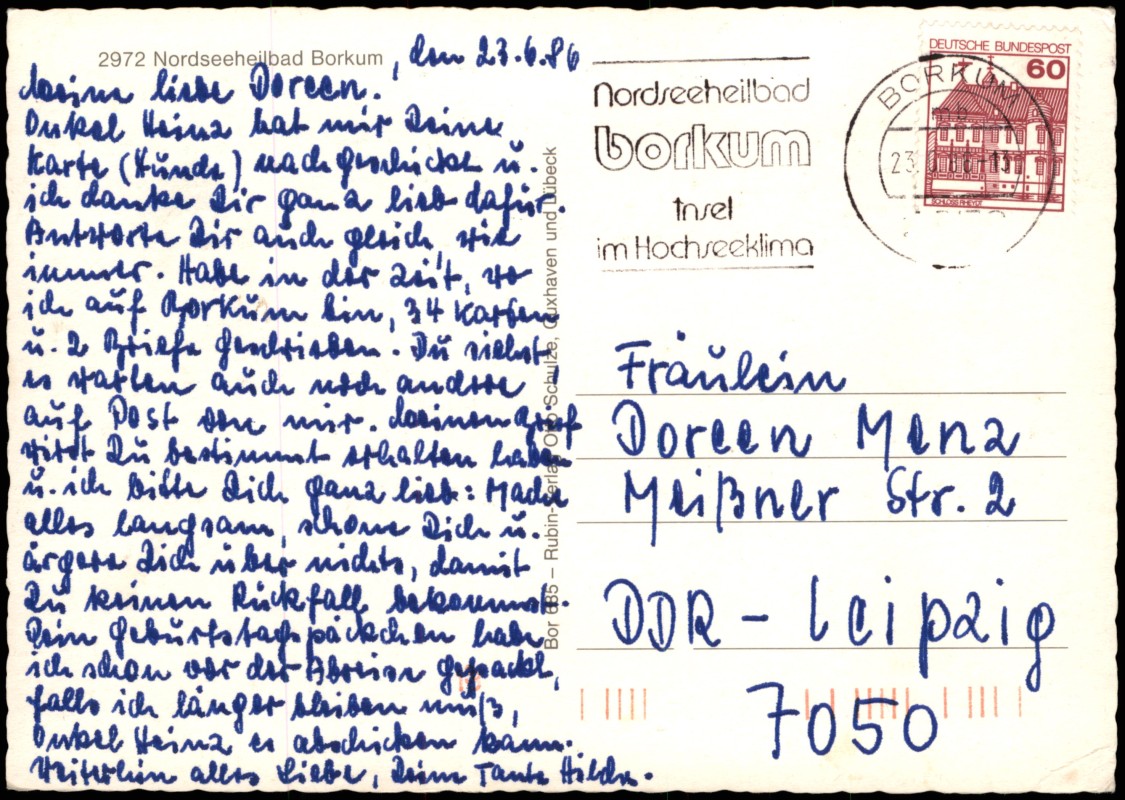 2972 Nordseeheilbad Borkum
, den 23.6.86
Meine liebe Doreen.
Onkel Heinz hat mir Deine
Karte (Hunde) nachgeschickt u.
ich danke Dir ganz lieb dafür.
Antworte Dir auch gleich, wie
immer. Habe in der Zeit, wo
ich auf Borkum bin, 34 Karten
u. 2 Briefe geschrieben. Du siehst
es warten auch noch andere
auf Post von mir. Meinen Brief
wirst Du bestimmt erhalten haben
u. ich bitte Dich ganz lieb: Mache
alles langsam, schone Dich u.
ärgere Dich über nichts, damit
Du keinen Rückfall bekommst.
Dein Geburtstagspäckchen habe
ich schon vor der Abreise gepackt,
falls ich länger bleiben muß,
Onkel Heinz es abschicken kann.
Weiterhin alles Liebe, Deine Tante Hilde.
Bor 885 – Rubin-Verlag Otto Schulze, Cuxhaven und Lübeck
Nordseeheilbad
borkum
Insel
im Hochseeklima
BORKUM
23
DEUTSCHE BUNDESPOST
60
SCHLOSS RHEYDT
Fräulein
Doreen Menz
Meißner Str. 2
DDR - Leipzig
7050